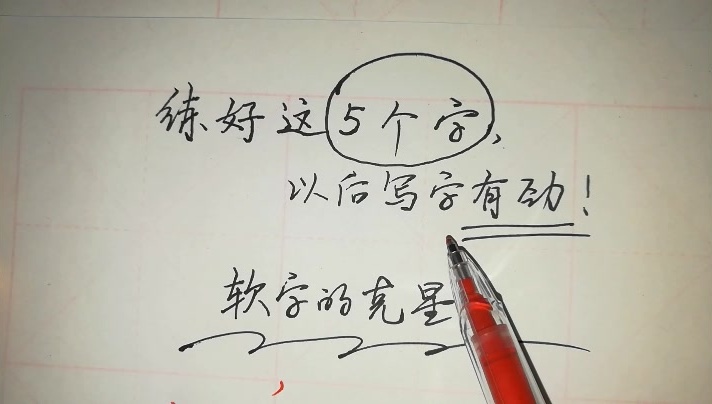 练好这5个字,
以后写字有劲!
软字的克星